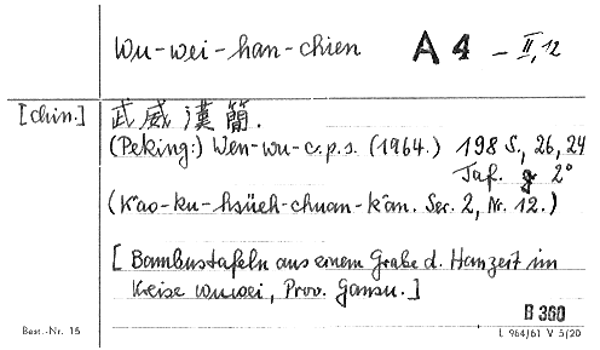 Wu-wei-han-chien A 4 - II, 12
[chin.] 武威漢簡.
(Peking:) Wen-wu-c.p.s. (1964.) 198 S., 26, 24
Taf. 2°
(K'ao-ku-hsüeh-chuan-k'an. Ser. 2, Nr. 12.)
[Bambustafeln aus einem Grabe d. Hanzeit im
Kreise Wuwei, Prov. Gansu.]
B 360
Best.-Nr. 15 L 964/61 V 5/20